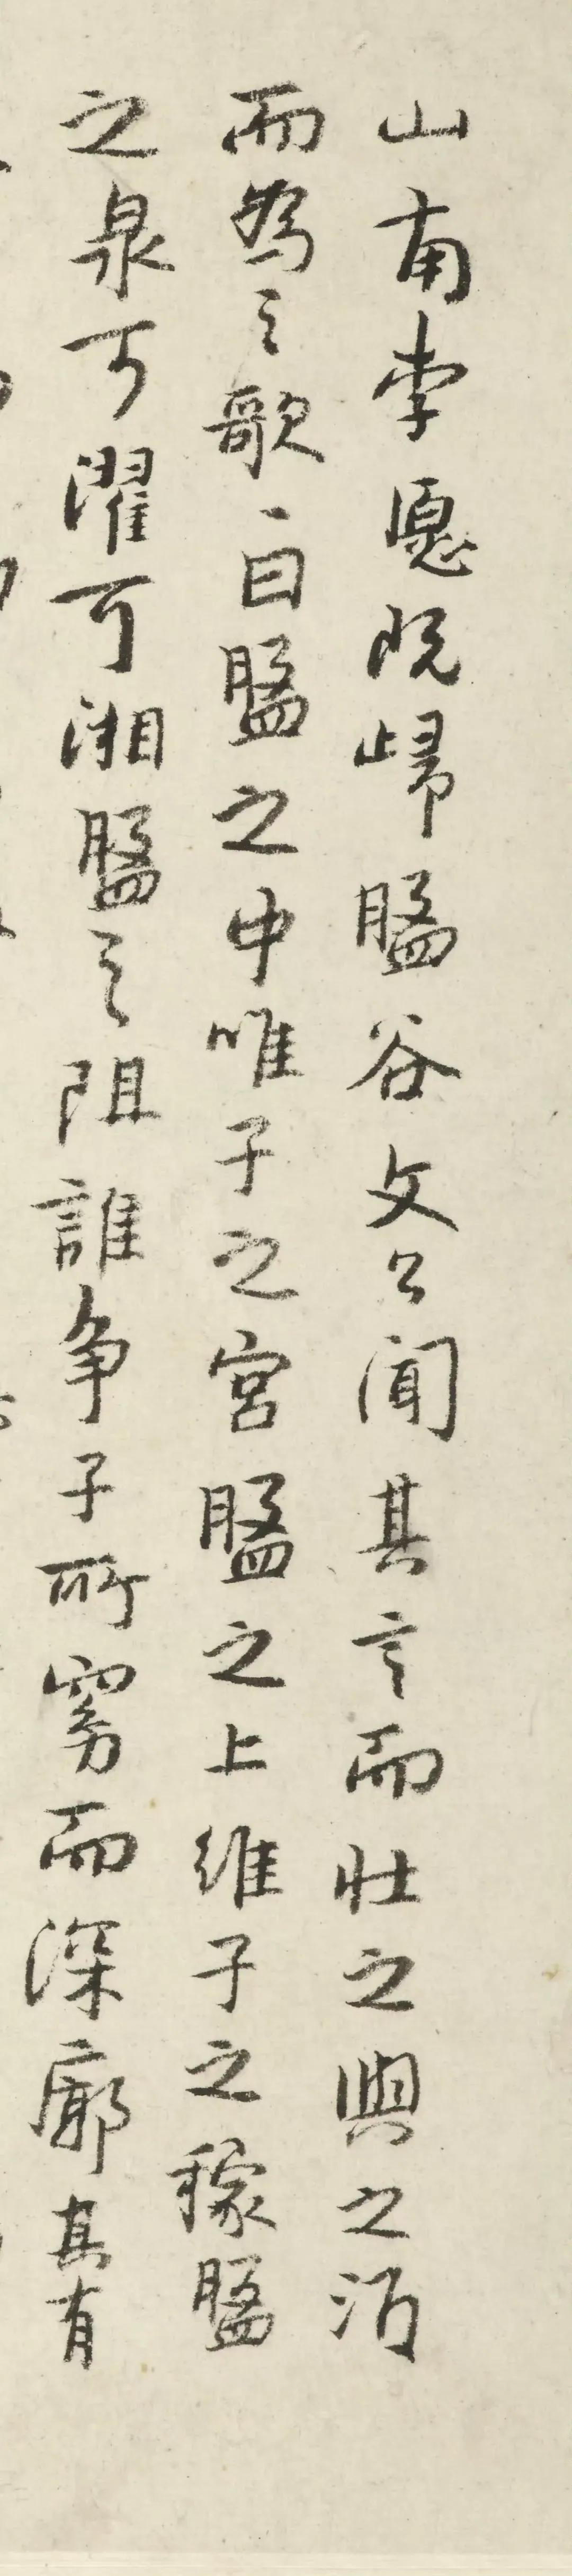 山南李愿既歸盤谷文公聞其言而壯之與之酒
而為之歌曰盤之中唯子之宮盤之上維子之稼盤
之泉可濯可湘盤之阻誰爭子所窈而深廓其有